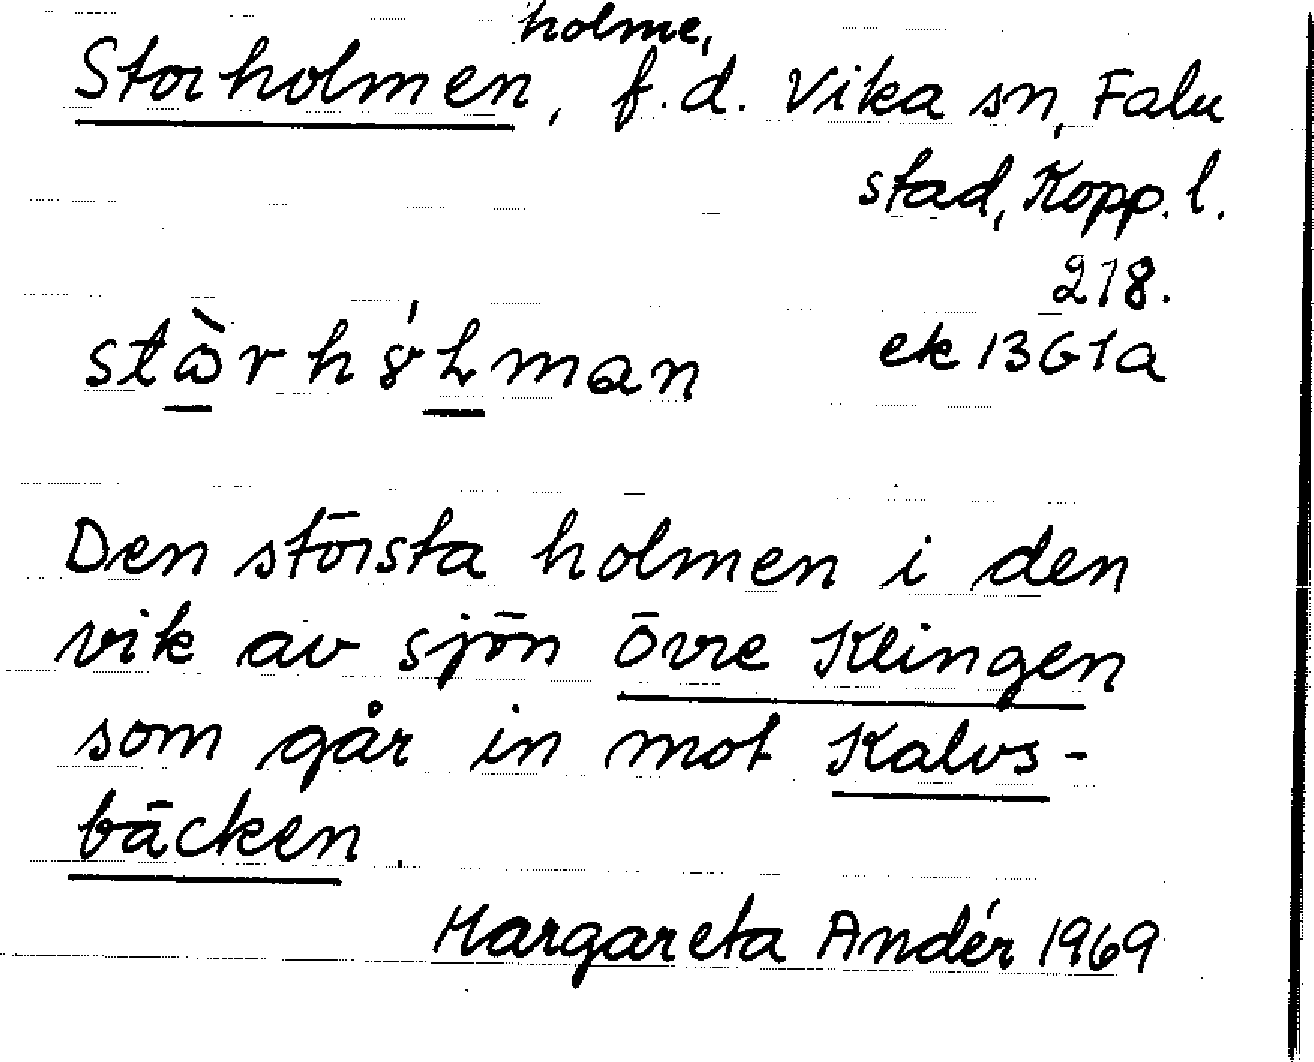 holme,
Storholmen, f.d. Vika sn, Falu
stad, Kopp. l.
218.
ek 13G1a
Den största holmen i den
vik av sjön Övre Klingen
som går in mot Kalvs-
bäcken.
Margareta Andér 1969